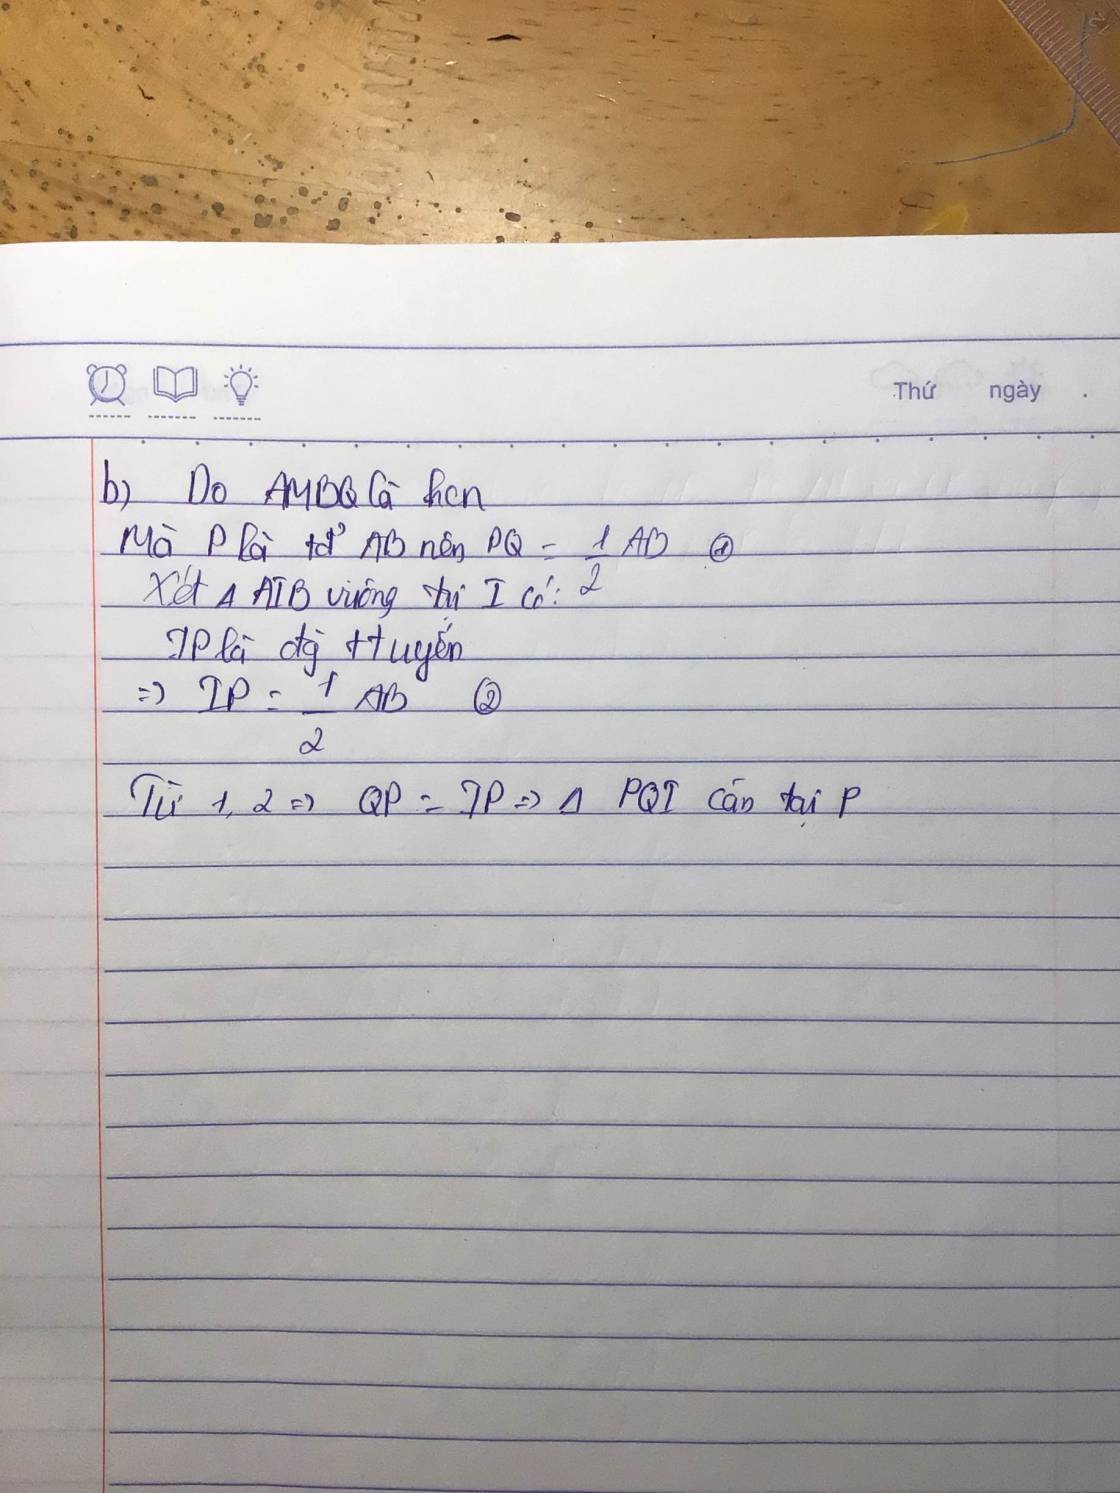 Thứ ngày .
b) Do AMBQ là hcn
Mà P là tđ' AB nên PQ = 1/2 AB ①
Xét Δ AIB vuông tại I có:
IP là đg ttuyến
=> IP = 1/2 AB ②
Từ 1, 2 => QP = IP => Δ PQI cân tại P